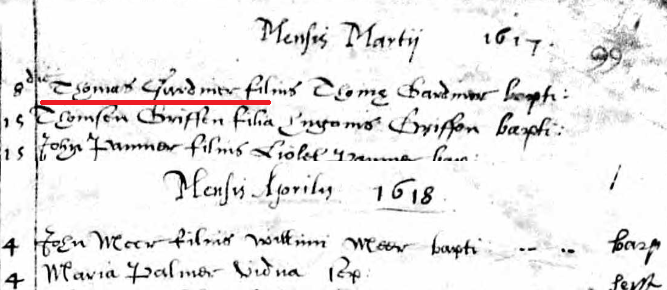 Mensis Martij 1617.
8 die Thomas Gardiner filius Thomę Gardiner bapti:
15 Thomsen Griffen filia Griffon bapti:
15 John Panner filius Liolel Panner bap:
Mensis Aprilis 1618
4 John Meer filius Willimi Meer bapti -- .. bap
4 Maria Palmer vidua sep: sept